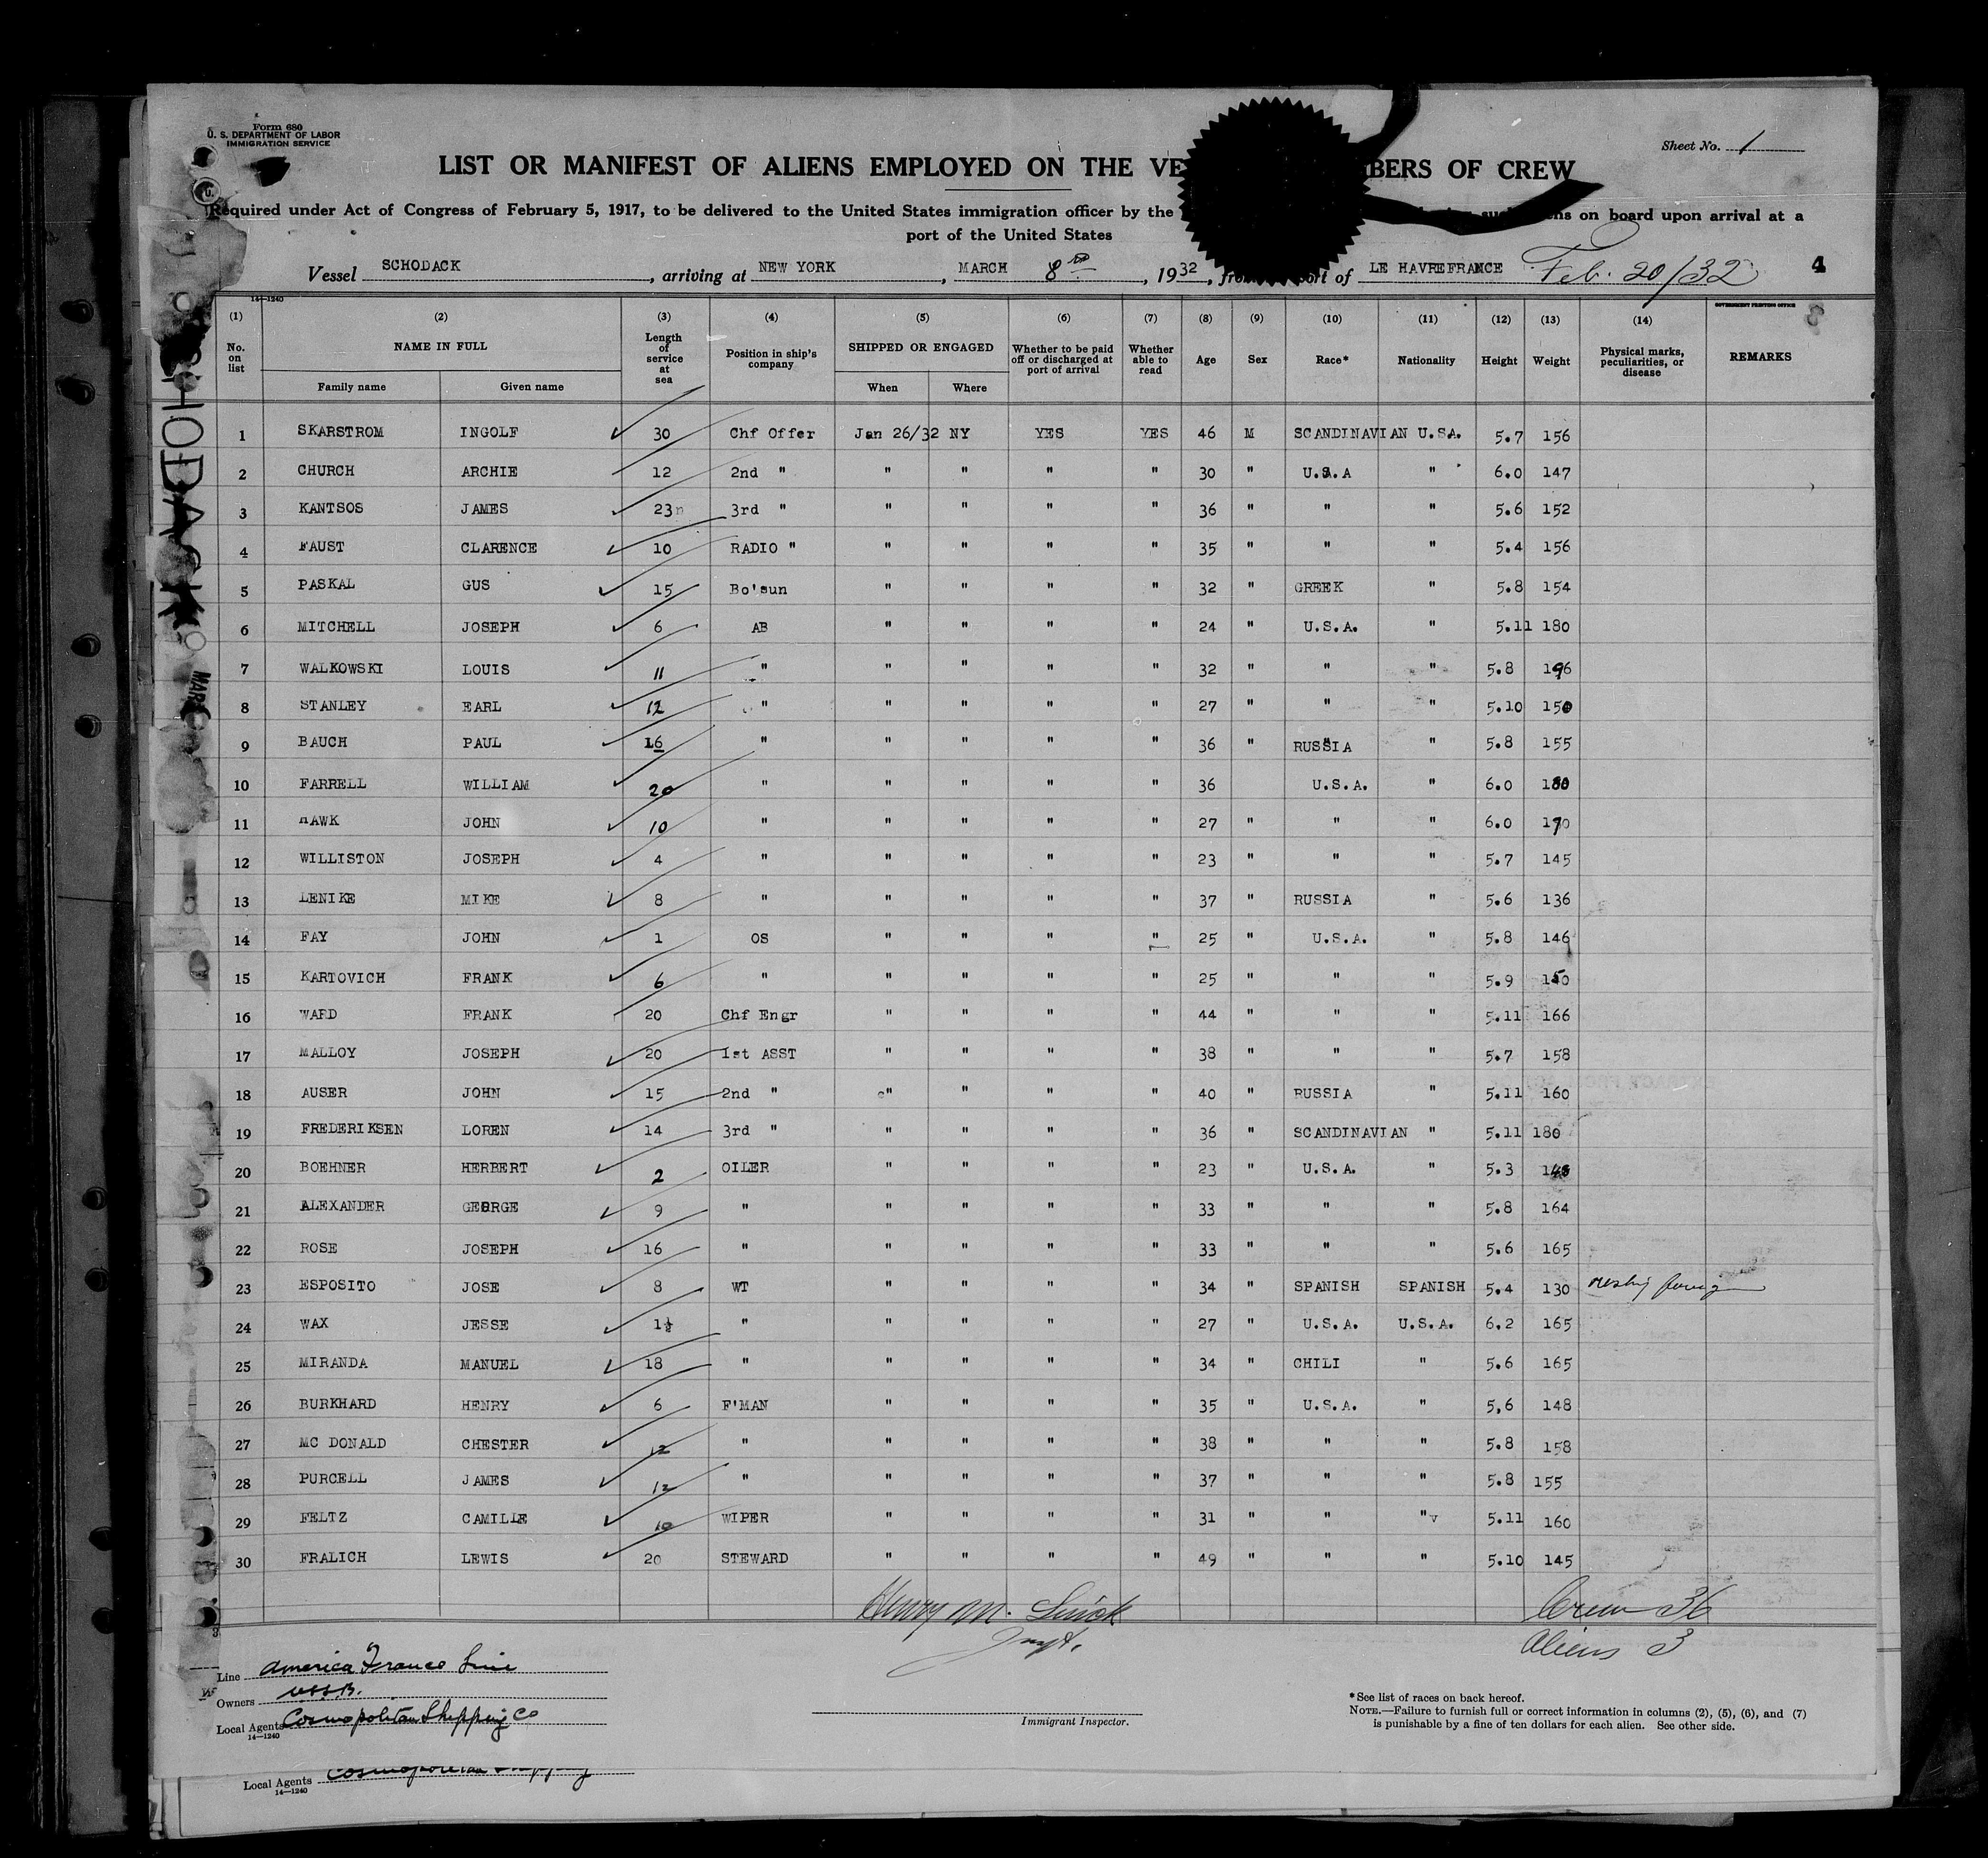 Form 680
U. S. DEPARTMENT OF LABOR
IMMIGRATION SERVICE
Sheet No. 1
LIST OR MANIFEST OF ALIENS EMPLOYED ON THE VE BERS OF CREW
Required under Act of Congress of February 5, 1917, to be delivered to the United States immigration officer by the on board upon arrival at a
port of the United States
Vessel SCHODACK, arriving at NEW YORK, MARCH 8th, 1932, from port of LE HAVREFRANCE Feb. 20/32 4
14—1240
GOVERNMENT PRINTING OFFICE
(1) (2) (3) (4) (5) (6) (7) (8) (9) (10) (11) (12) (13) (14)
No. on list NAME IN FULL Family name Given name Length of service at sea Position in ship's company SHIPPED OR ENGAGED When Where Whether to be paid off or discharged at port of arrival Whether able to read Age Sex Race* Nationality Height Weight Physical marks, peculiarities, or disease REMARKS
1 SKARSTROM INGOLF 30 Chf Offer Jan 26/32 NY YES YES 46 M SCANDINAVIAN U.S.A. 5.7 156
2 CHURCH ARCHIE 12 2nd " " " " " 30 " U.S.A " 6.0 147
3 KANTSOS JAMES 23 3rd " " " " " 36 " " " 5.6 152
4 FAUST CLARENCE 10 RADIO " " " " " 35 " " " 5.4 156
5 PASKAL GUS 15 Bo'sun " " " " 32 " GREEK " 5.8 154
6 MITCHELL JOSEPH 6 AB " " " " 24 " U.S.A. " 5.11 180
7 WALKOWSKI LOUIS 11 " " " " " 32 " " " 5.8 196
8 STANLEY EARL 12 " " " " " 27 " " " 5.10 150
9 BAUCH PAUL 16 " " " " " 36 " RUSSIA " 5.8 155
10 FARRELL WILLIAM 20 " " " " " 36 U.S.A. " 6.0 180
11 HAWK JOHN 10 " " " " " 27 " " " 6.0 170
12 WILLISTON JOSEPH 4 " " " " " 23 " " " 5.7 145
13 LENIKE MIKE 8 " " " " " 37 " RUSSIA " 5.6 136
14 FAY JOHN 1 OS " " " " 25 " U.S.A. " 5.8 146
15 KARTOVICH FRANK 6 " " " " " 25 " " " 5.9 150
16 WARD FRANK 20 Chf Engr " " " " 44 " " " 5.11 166
17 MALLOY JOSEPH 20 1st ASST " " " " 38 " " " 5.7 158
18 AUSER JOHN 15 2nd " " " " " 40 " RUSSIA " 5.11 160
19 FREDERIKSEN LOREN 14 3rd " " " " " 36 " SCANDINAVIAN " 5.11 180
20 BOEHNER HERBERT 2 OILER " " " " 23 " U.S.A. " 5.3
21 ALEXANDER GEORGE 9 " " " " " 33 " " " 5.8 164
22 ROSE JOSEPH 16 " " " " " 33 " " " 5.6 165
23 ESPOSITO JOSE 8 WT " " " " 34 " SPANISH SPANISH 5.4 130
24 WAX JESSE 1½ " " " " " 27 " U.S.A. U.S.A. 6.2 165
25 MIRANDA MANUEL 18 " " " " " 34 " CHILI " 5.6 165
26 BURKHARD HENRY 6 F'MAN " " " " 35 " U.S.A. " 5,6 148
27 MC DONALD CHESTER 12 " " " " " 38 " " " 5.8 158
28 PURCELL JAMES 12 " " " " " 37 " " " 5.8 155
29 FELTZ CAMILLE 10 WIPER " " " " 31 " " " 5.11 160
30 FRALICH LEWIS 20 STEWARD " " " " 49 " " " 5.10 145
SCHODACK
MAR
Henry M.
Crew 36
Aliens 3
Line America France Line
Owners U.S.S.B.
Local Agents Cosmopolitan Shipping Co
14—1240
Immigrant Inspector.
*See list of races on back hereof.
NOTE.—Failure to furnish full or correct information in columns (2), (5), (6), and (7)
is punishable by a fine of ten dollars for each alien. See other side.
Local Agents Cosmopolitan Shipping
14—1240